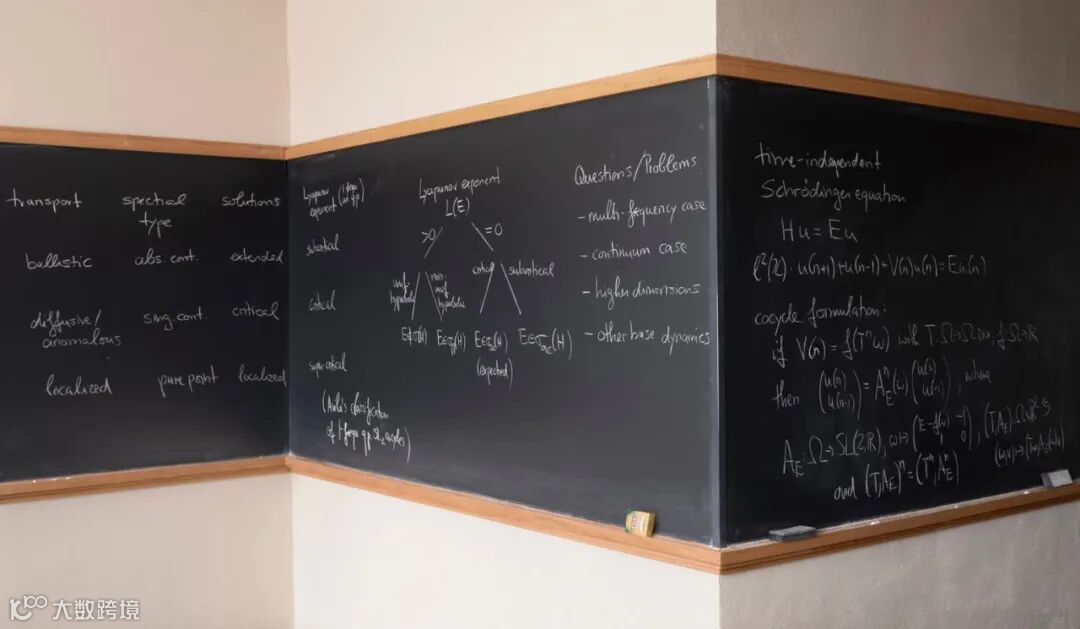 transport spectral type solutions
ballistic abs. cont. extended
diffusive/anomalous sing. cont. critical
localized pure point localized
Lyapunov exponent
subcritical
critical
supercritical
(Avila's classification
of 1-freq. q.p. SL₂ cocycles)
Lyapunov exponent
L(E)
>0 =0
unif. hyperbolic non-unif. hyperbolic critical subcritical
E∉σ(H) E∈σpp(H) E∈σsc(H) E∈σac(H)
(expected)
Questions/Problems
- multi-frequency case
- continuum case
- higher dimensions
- other base dynamics
time-independent
Schrödinger equation
Hu = Eu
ℓ²(ℤ): u(n+1)+u(n-1)+V(n)u(n)=Eu(n)
cocycle formulation:
if V(n) = f(Tⁿω) with T:Ω→Ω inv, f:Ω→ℝ
then (u(n) u(n-1)) = Aⁿ_E(ω) (u(0) u(-1)), where
A_E: Ω→SL(2,ℝ), ω↦(E-f(ω) -1 1 0), (T,A_E):
and (T,A_E)ⁿ = (Tⁿ,Aⁿ_E)
大数跨境